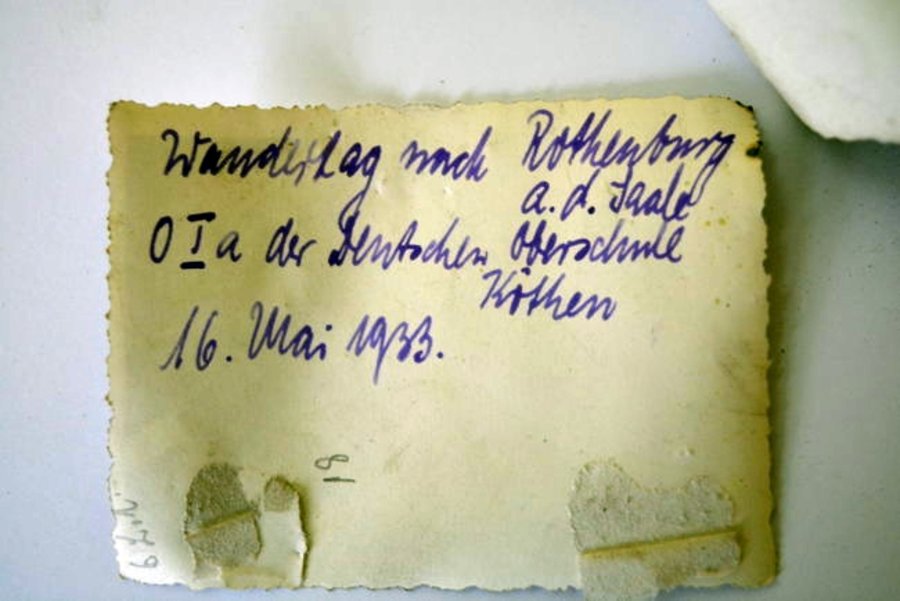 Wandertag nach Rothenburg
a. d. Saale
O I a der Deutschen Oberschule
Köthen
16. Mai 1933.
18